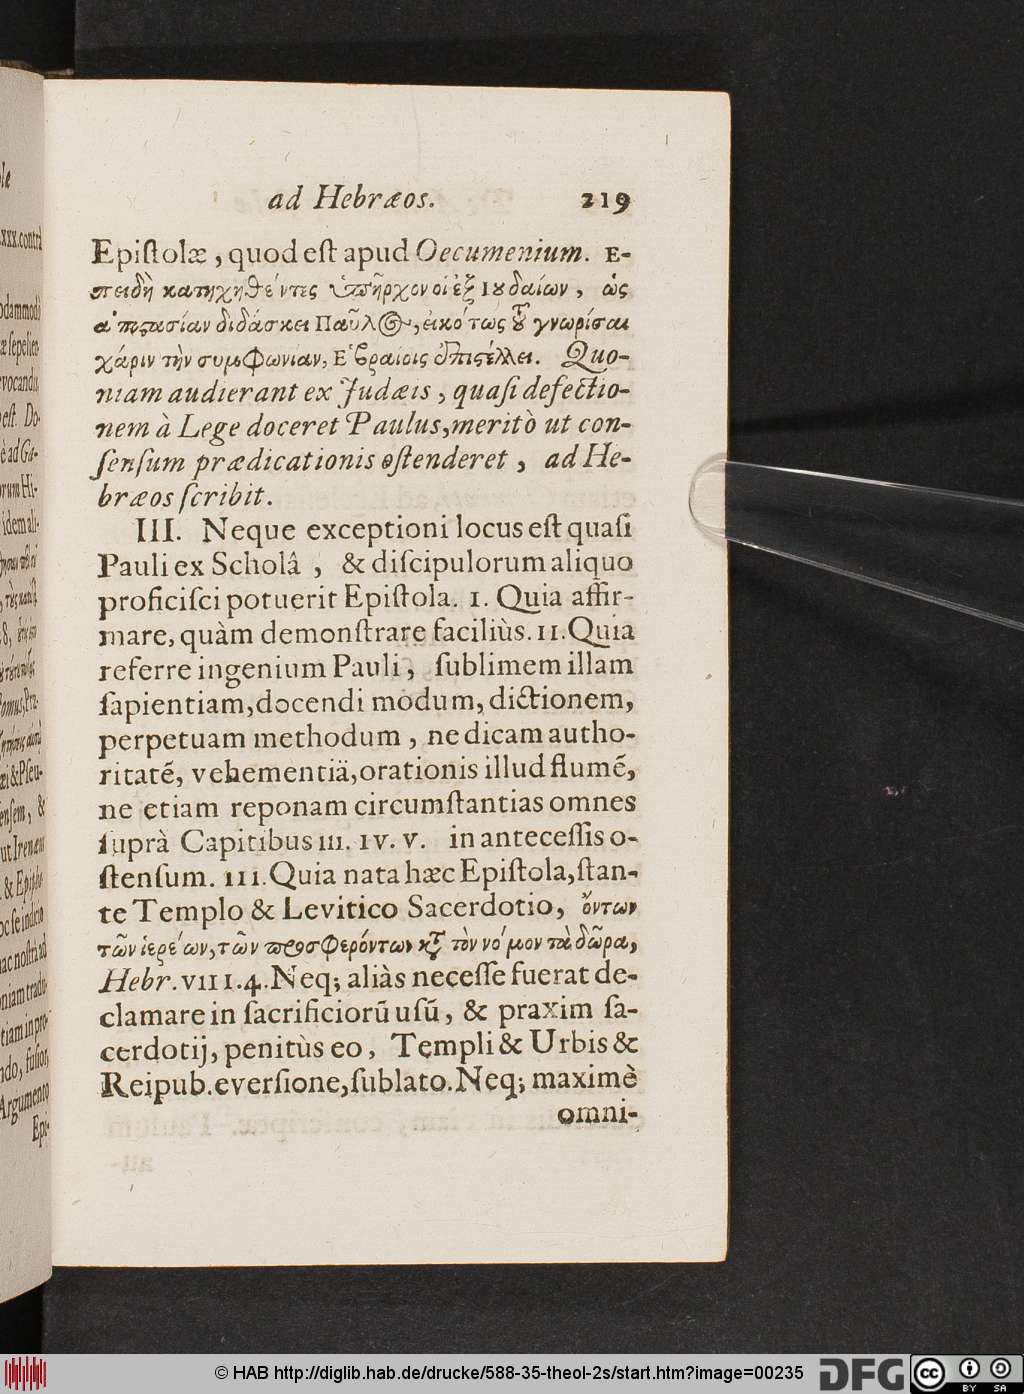 ad Hebræos. 219
Epiſtolæ, quod est apud Oecumenium. Ε-
πειδὴ κατηχηθέντες ὑπῆρχον οἱ ἐξ Ιουδαίων, ὡς
ἀποστασίαν διδάσκει Παῦλος, εἰκότως τοῦ γνωρίσαι
χάριν τὴν συμφωνίαν, Εβραίοις ἐπιστέλλει. Quo-
niam audierant ex Judæis, quaſi defectio-
nem à Lege doceret Paulus, meritò ut con-
ſenſum prædicationis oſtenderet, ad He-
bræos ſcribit.
III. Neque exceptioni locus eſt quaſi
Pauli ex Scholâ, & diſcipulorum aliquo
proficiſci potuerit Epiſtola. I. Quia affir-
mare, quàm demonſtrare faciliùs. II. Quia
referre ingenium Pauli, ſublimem illam
ſapientiam, docendi modum, dictionem,
perpetuam methodum, ne dicam autho-
ritatẽ, vehementiã, orationis illud flumẽ,
ne etiam reponam circumſtantias omnes
ſuprà Capitibus III. IV. V. in anteceſſis o-
ſtenſum. III. Quia nata hæc Epiſtola, ſtan-
te Templo & Levitico Sacerdotio, ὄντων
τῶν ἱερείων, τῶν προσφερόντων κατὰ τὸν νόμον τὰ δῶρα,
Hebr. VIII. 4. Neq; aliàs neceſſe fuerat de-
clamare in ſacrificiorũ uſũ, & praxim ſa-
cerdotij, penitùs eo, Templi & Urbis &
Reipub. everſione, ſublato. Neq; maximè
omni-
© HAB http://diglib.hab.de/drucke/588-35-theol-2s/start.htm?image=00235
DFG
cc BY SA